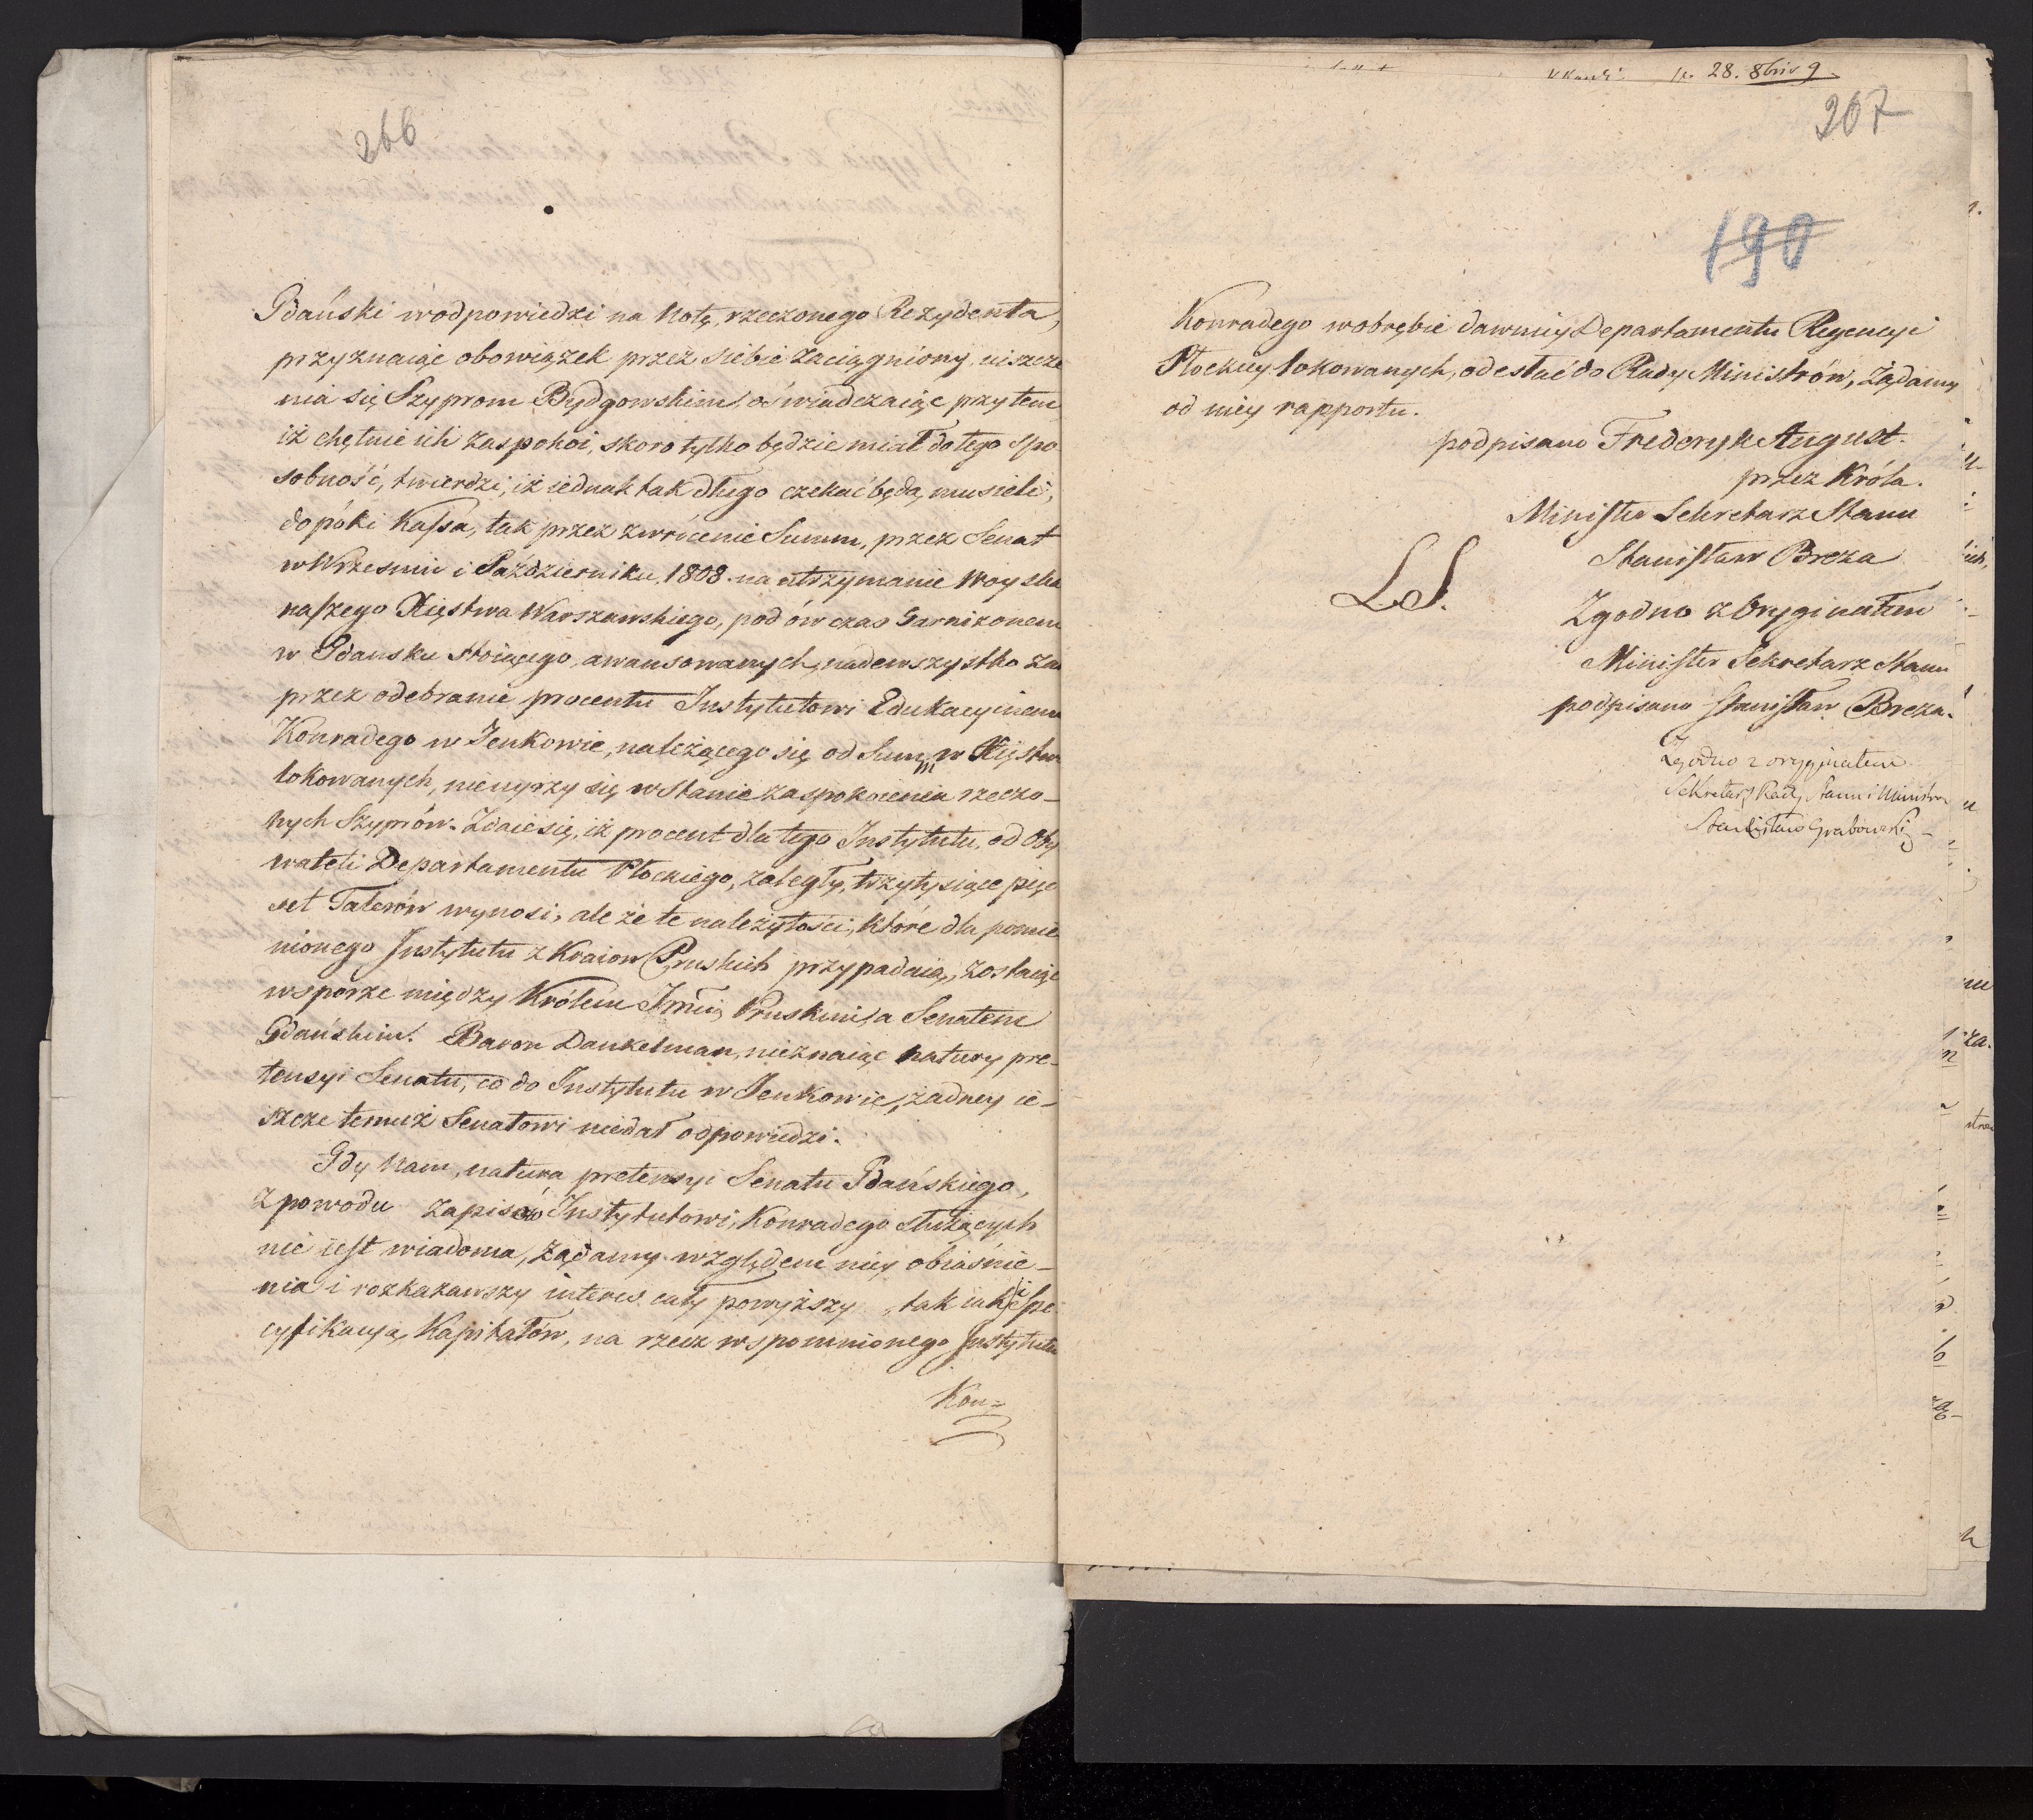 266
Gdański w odpowiedzi na Notę, rzeczonego Rezydenta,
przyznaiąc obowiązek przez siebie zaciągniony, uiszcze
nia się Szyprom Bydgowskim, oświadczaiąc przytem
iż chętnie ich zaspokoi, skoro tylko będzie miał do tego spo
sobność, twierdzi, iż iednak tak długo czekać będą musieli,
dopóki Kassa, tak przez zwrócenie Summ, przez Senat
w Wrześniu i Październiku, 1808. na utrzymanie Woyska
naszego Xięstwa Warszawskiego, pod ów czas Garnizonem
w Gdańsku stoiącego, awansowanych, nadewszystko zaś
przez odebranie procentu Instytutowi Edukacyinemu
Konradego w Jenkowie, należącego się od Summ w Xięstwie
lokowanych, nieuyrzy się w stanie zaspokoienia rzeczo-
nych Szyprów. Zdaie się, iż procent dla tego Instytutu, od Oby
wateli Departamentu Płockiego, zaległy, trzy tysiące pięć
set Talerów wynosi, ale że te należytości, które dla pomie
nionego Instytutu z Kraiow Pruskich przypadaią, zostaią
w sporze między Królem Jmcią Pruskim, a Senatem
Gdańskim. Baron Dankelman, nieznaiąc natury pre-
tensyi Senatu, co do Instytutu w Jenkowie, żadney ie-
szcze temuż Senatowi niedał odpowiedzi.
Gdy Nam, natura pretensyi Senatu Gdańskiego,
z powodu zapisów Instytutowi, Konradego służących
nie iest wiadoma, żądamy względem niey obiaśnie-
nia i rozkazawszy interes cały powyższy, tak iak i spe
cyfikacyą, Kapitałów, na rzecz wspomnionego Instytutu
Kon=
28. 8briv 9
267
190
Konradego w obrębie dawniey Departamentu Regencyi
Płockiey lokowanych, odesłać do Rady Ministrów, żądamy
od niey rapportu.
podpisano Fryderyk August.
przez Króla.
Minister Sekretarz Stanu
Stanisław Breza
LS.
Zgodno z Oryginałem
Minister Sekretarz Stanu
podpisano Stanisław Breza.
Zgodno z oryginałem
Sekretarz Rady Stanu i Ministrow
Stanisław Grabowski